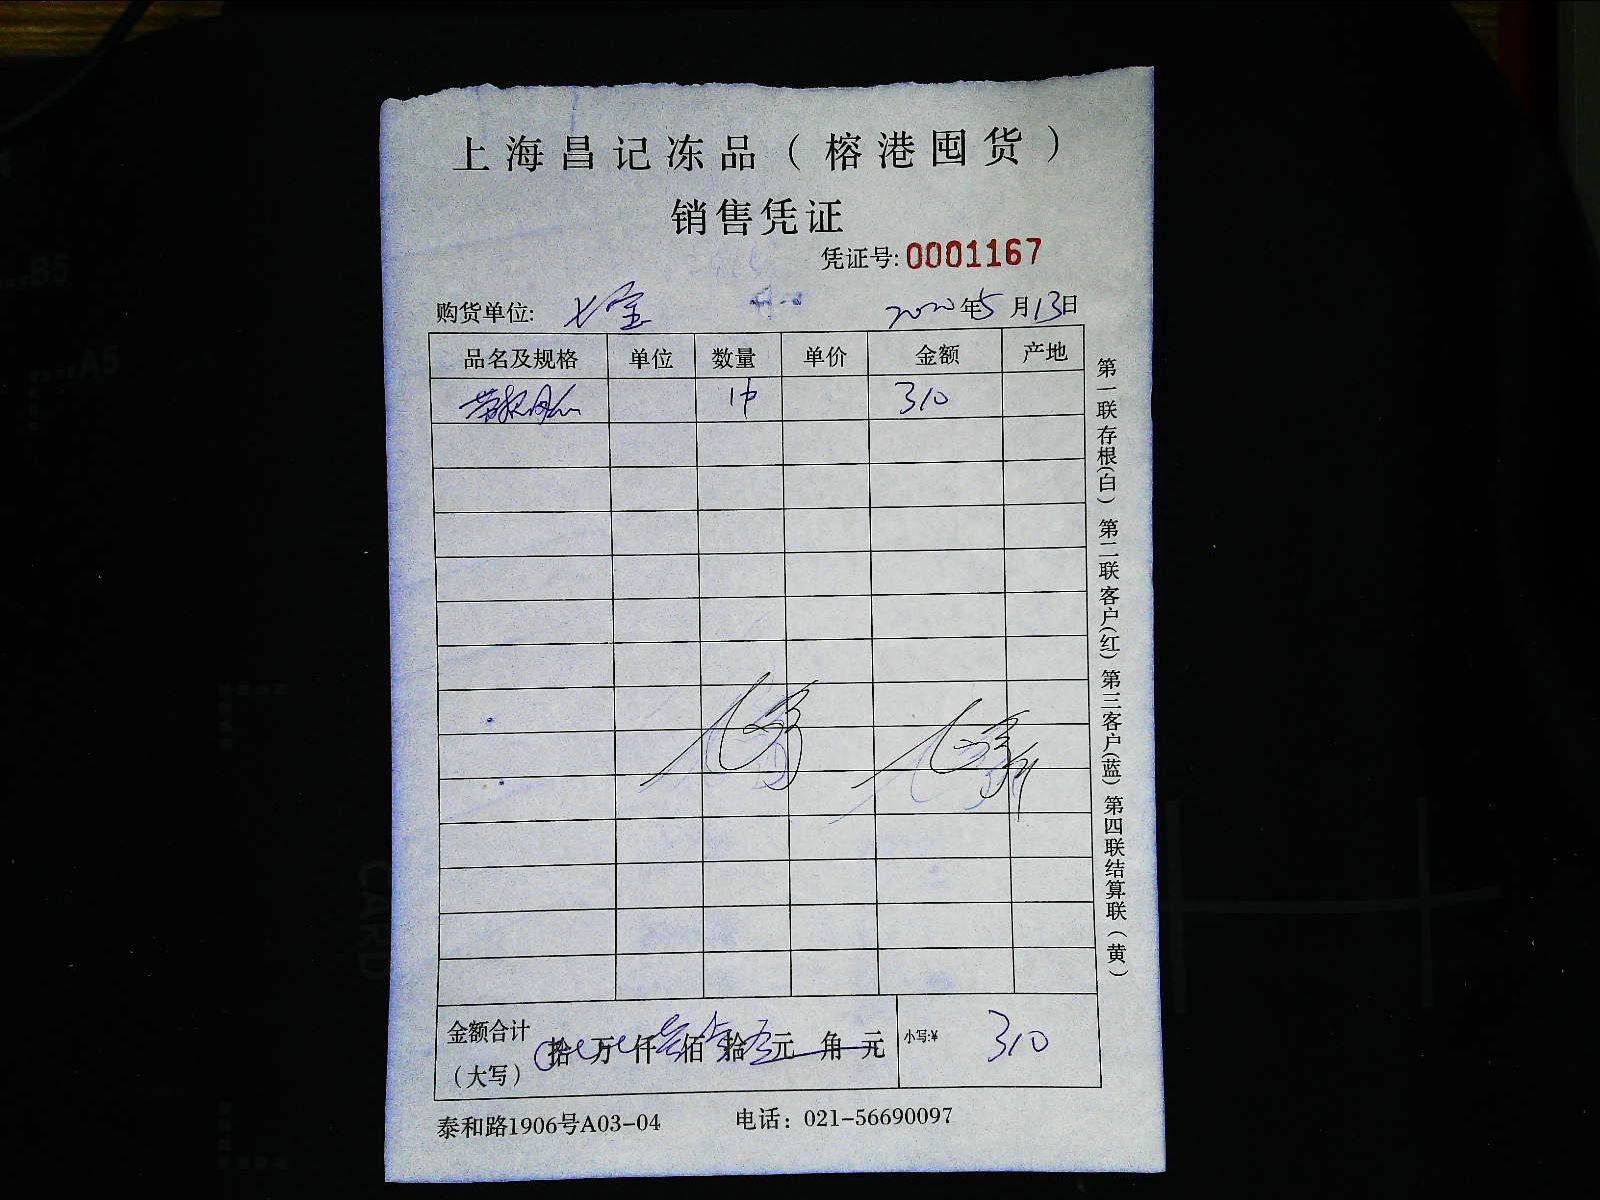 上海昌记冻品（榕港囤货）
销售凭证
凭证号:0001167
购货单位: 七宝 2020年5月13日
品名及规格 单位 数量 单价 金额 产地
1件 310
金额合计（大写） 拾 万 仟 佰 拾 元 角 元 小写:¥ 310
泰和路1906号A03-04 电话：021-56690097
第一联存根(白) 第二联客户(红) 第三客户(蓝) 第四联结算联（黄）
B5
A5
CARD